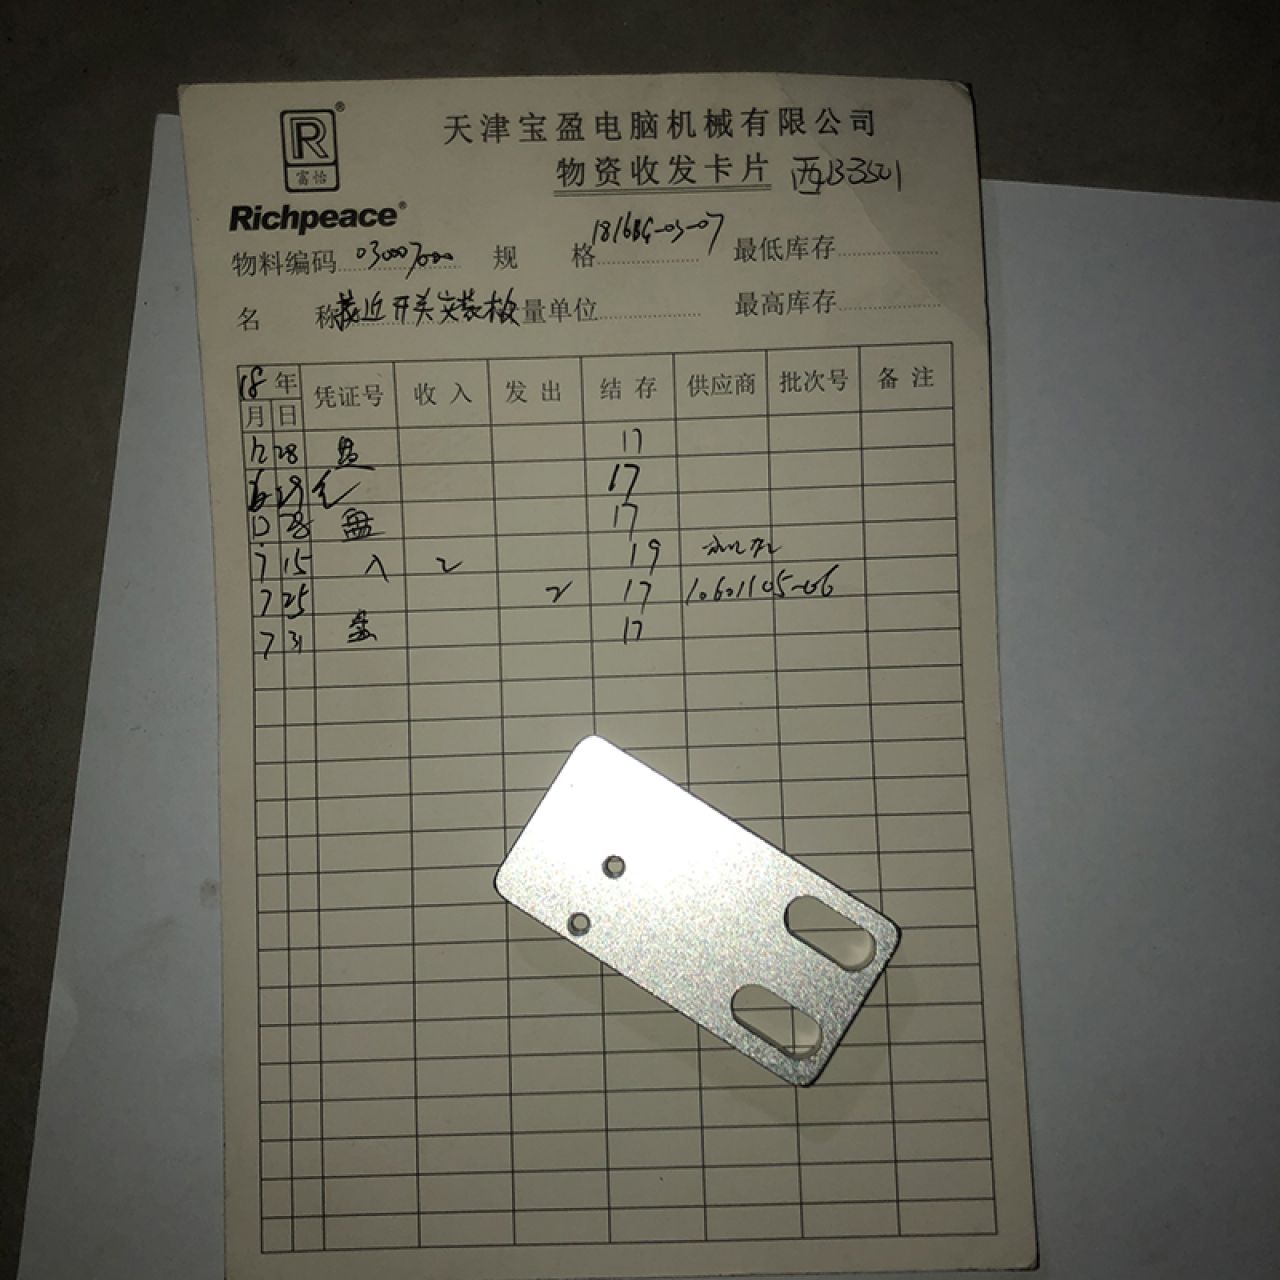 R®
富怡
Richpeace®
天津宝盈电脑机械有限公司
物资收发卡片 西B3501
物料编码 030007000 规 格 1816BG-03-07 最低库存
名 称 接近开关安装板 量单位 最高库存
18年 凭证号 收入 发出 结存 供应商 批次号 备注
月 日
12 28 盘 17
6 29 17
12 28 盘 17
7 15 入 2 19
7 25 2 17 10601105-06
7 31 盘 17